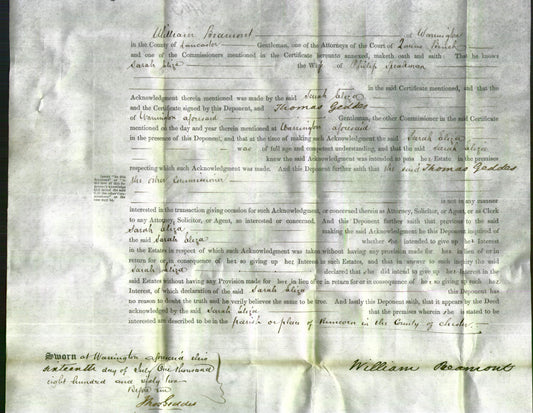 William Beamont of Warrington
in the County of Lancaster Gentleman, one of the Attorneys of the Court of Queens Bench
and one of the Commissioners mentioned in the Certificate hereunto annexed, maketh oath and saith: That he knows
Sarah Eliza the Wife of Philip Steadman
in the said Certificate mentioned, and that the
Acknowledgment therein mentioned was made by the said Sarah Eliza
and the Certificate signed by this Deponent, and Thomas Geddes
of Warrington aforesaid Gentleman, the other Commissioner in the said Certificate
mentioned on the day and year therein mentioned at Warrington aforesaid
in the presence of this Deponent, and that at the time of making such Acknowledgment the said Sarah Eliza
was of full age and competent understanding, and that the said Sarah Eliza
knew the said Acknowledgment was intended to pass her Estate in the premises
respecting which such Acknowledgment was made. And this Deponent further saith that the said Thomas Geddes
the other Commissioner
is not in any manner
interested in the transaction giving occasion for such Acknowledgment, or concerned therein as Attorney, Solicitor, or Agent, or as Clerk
to any Attorney, Solicitor, or Agent, so interested or concerned. And this Deponent further saith that previous to the said
Sarah Eliza making such Acknowledgment this Deponent inquired of
the said Sarah Eliza whether she intended to give up her Interest
in the Estates in respect of which such Acknowledgment was taken without having any provision made for her in lieu of or in
return for or in consequence of her so giving up her Interest in such Estates, and that in answer to such inquiry the said
Sarah Eliza declared that she did intend to give up her Interest in the
said Estates without having any Provision made for her in lieu of or in return for or in consequence of her so giving up such
Interest, of which declaration of the said Sarah Eliza this Deponent has
no reason to doubt the truth and he verily believes the same to be true. And lastly this Deponent saith, that it appears by the Deed
acknowledged by the said Sarah Eliza that the premises wherein she is stated to be
interested are described to be in the parish or place of Runcorn in the County of Chester.
Sworn at Warrington aforesaid this
sixteenth day of July One thousand
eight hundred and sixty two
Before me
Thos Geddes
William Beamont